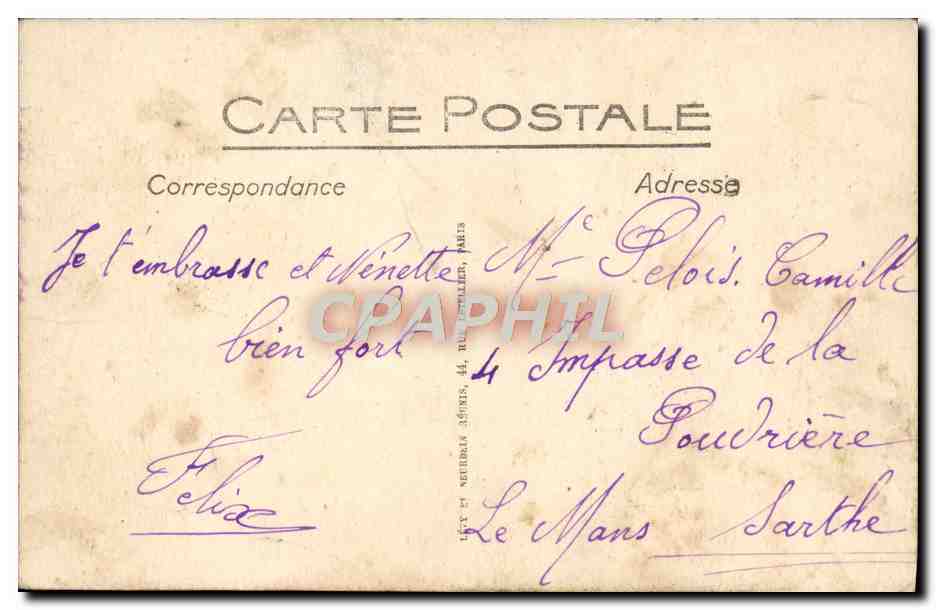 CARTE POSTALE
Correspondance
Adresse
Je t'embrasse et Nénette
bien fort
Felix
LÉVY ET NEURDEIN RÉUNIS, 44, RUE LETELLIER, PARIS
Me Pelois. Camille
4 Impasse de la
Poudrière
Le Mans Sarthe
CPAPHIL